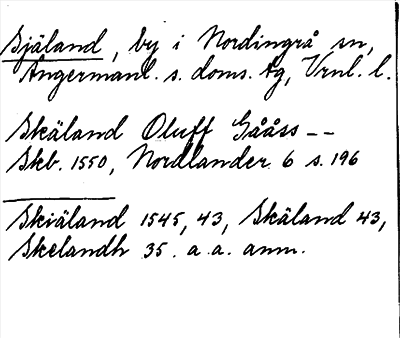 Själand, by i Nordingrå sn,
Ångermanl. s. doms. tg, Vrnl. l.
Skäland Oluff Gååss --
Skb. 1550, Nordlander 6 s. 196
Skiäland 1545, 43, Skäland 43,
Skelandh 35. a. a. anm.